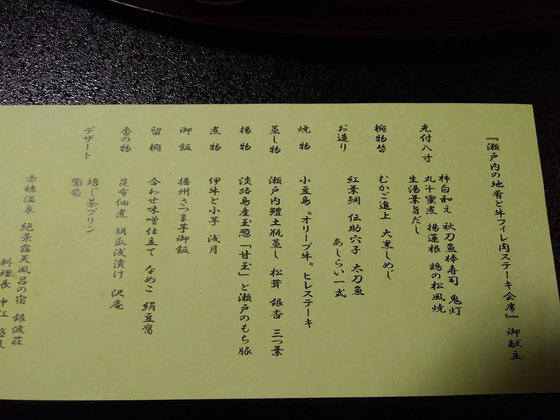 『瀬戸内の地肴と牛フィレ肉ステーキ会席』 御献立
先付八寸 柿白和え 秋刀魚棒寿司 鬼灯
丸十蜜煮 揚蓮根 鶏の松風焼
生湯葉旨だし
椀物替 むかご進上 大黒しめじ
お造り 紅葉鯛 伝助穴子 太刀魚
あしらい一式
焼物 小豆島"オリーブ牛"ヒレステーキ
蒸し物 瀬戸内鱧土瓶蒸し 松茸 銀杏 三つ葉
揚物 淡路島産玉葱「甘玉」と瀬戸のもち豚
煮物 伊牛と小芋 浅月
御飯 播州さつま芋御飯
留椀 合わせ味噌仕立て なめこ 絹豆腐
香の物 昆布佃煮 胡瓜浅漬け 沢庵
デザート 焙じ茶プリン
葡萄
赤穂温泉 絶景露天風呂の宿 銀波荘
料理長